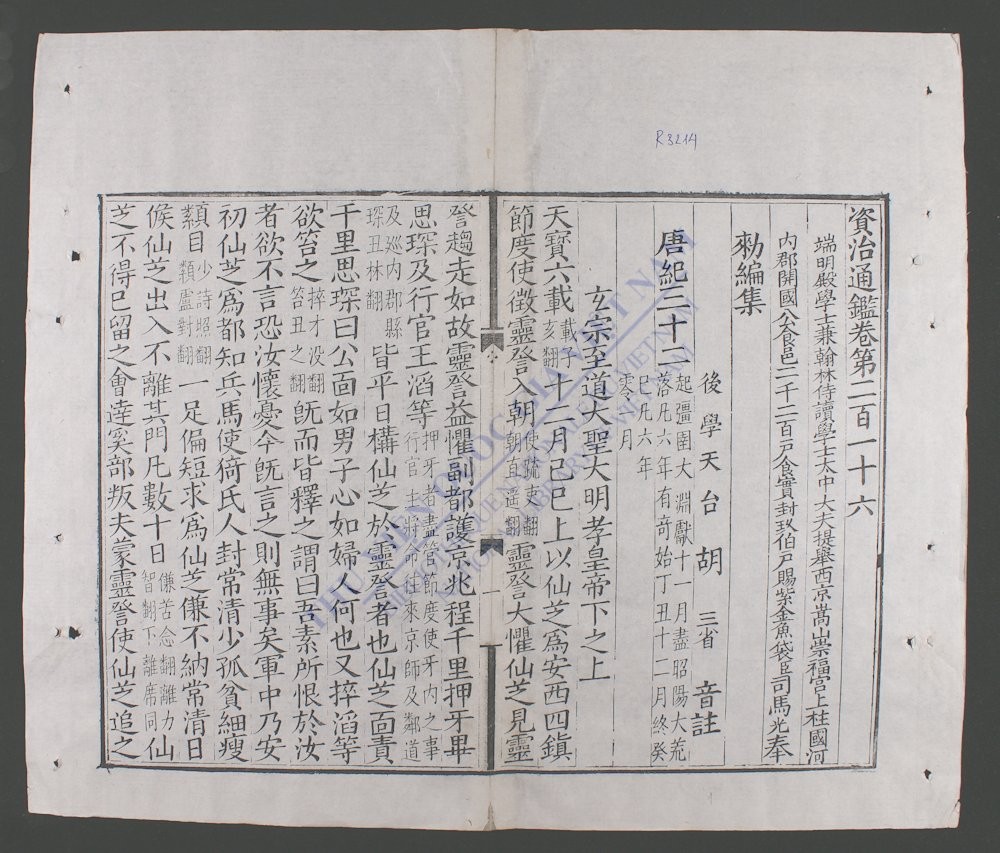 R3214
資治通鑑卷第二百一十六
端明殿學士兼翰林侍讀學士太中大夫提舉西京嵩山崇福宮上柱國河
内郡開國公食邑二千二百戸食實封玖伯戸賜紫金魚袋臣司馬光奉
勑編集
後學天台胡三省音註
唐紀三十二
起彊圉大淵獻十一月盡昭陽大荒
落凡六年有奇始丁丑十二月終癸
巳凡六年
零月
玄宗至道大聖大明孝皇帝下之上
天寶六載載子亥翻十二月己巳上以仙芝爲安西四鎮
節度使徵靈詧入朝使疏吏翻朝直遥翻靈詧大懼仙芝見靈
詧趨走如故靈詧益懼副都護京兆程千里押牙畢
思琛及行官王滔等押牙者盡管節度使牙内之事行官主將命往來京師及鄰道
及巡内郡縣琛丑林翻皆平日構仙芝於靈詧者也仙芝面責
千里思琛曰公面如男子心如婦人何也又捽滔等
欲笞之捽才没翻笞丑之翻旣而皆釋之謂曰吾素所恨於汝
者欲不言恐汝懷憂今旣言之則無事矣軍中乃安
初仙芝爲都知兵馬使猗氏人封常清少孤貧細瘦
纇目少詩照翻纇盧對翻一足偏短求爲仙芝傔不納常清日
候仙芝出入不離其門凡數十日傔苦念翻離力智翻下離席同仙
芝不得已留之會達奚部叛夫蒙靈詧使仙芝追之
一
THU VIEN QUOC GIA VIET NAM
NATIONAL LIBRARY OF VIETNAM